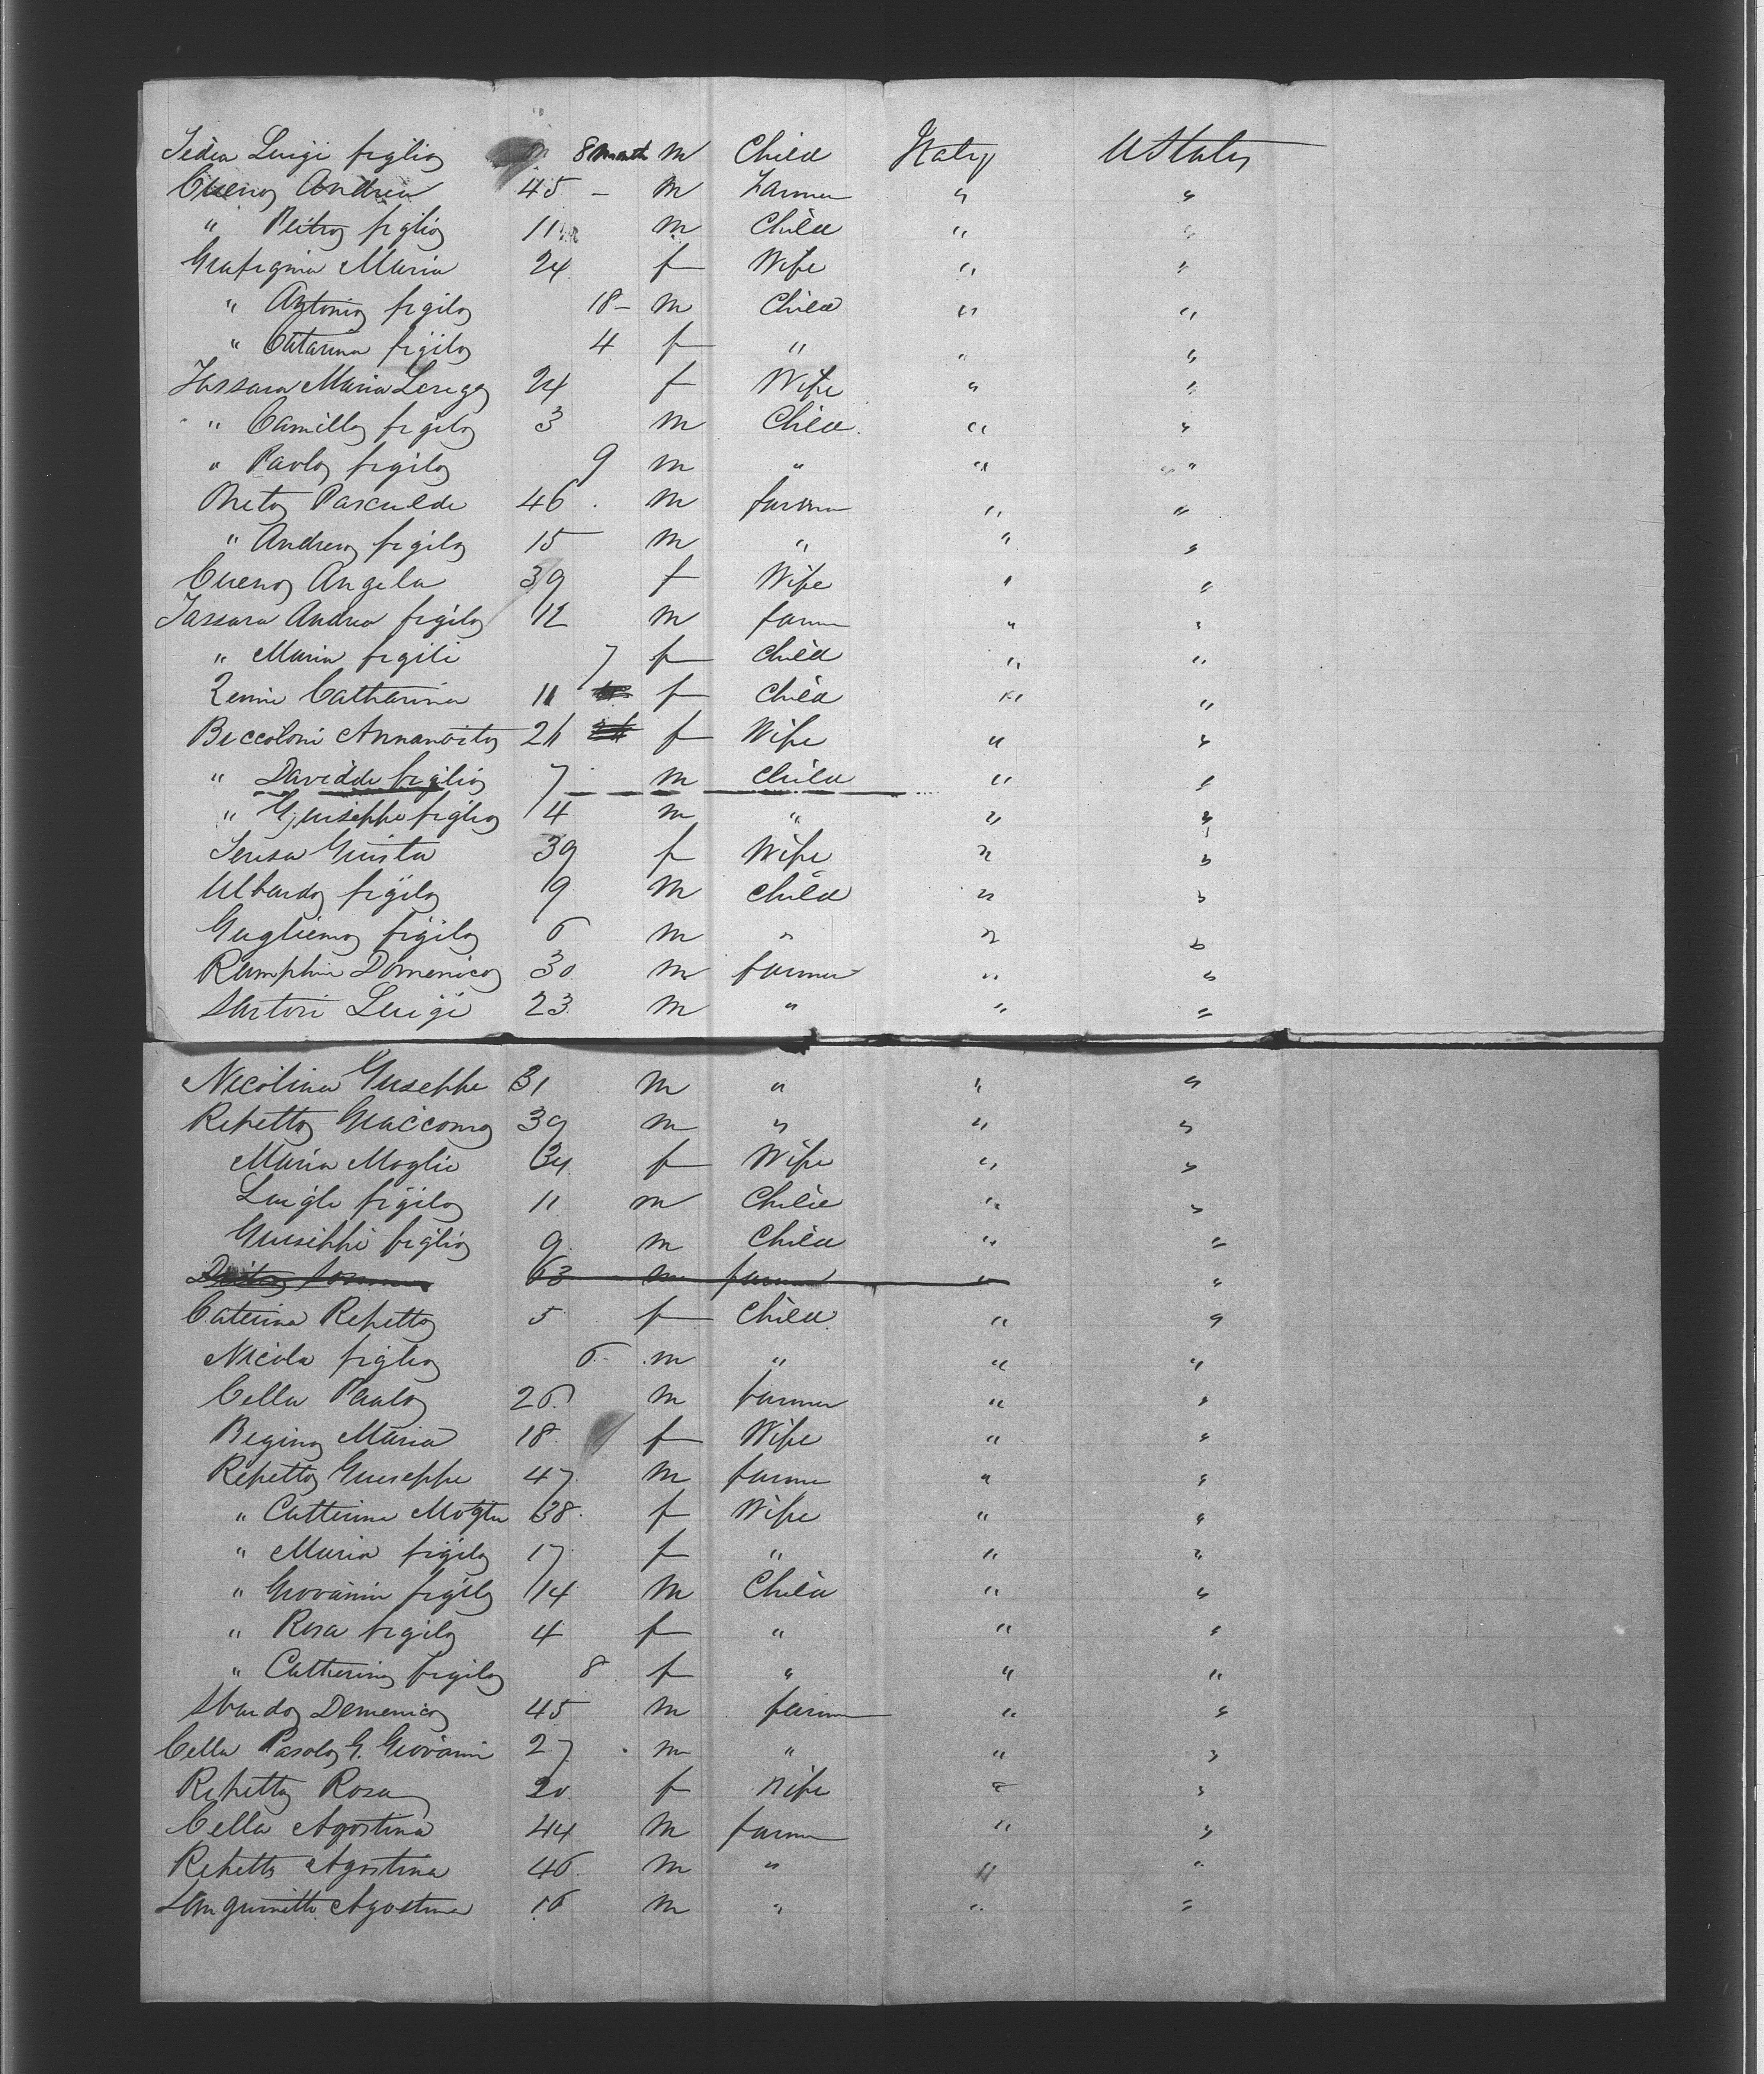 Luigi figlio 8 month m Child Italy U States
Cueno Andrea 45 – m Farmer " "
" Peitro figlio 11 m Child " "
Grafignia Maria 24 f Wife " "
" Antonio figilo 18 – m Child " "
" Catarina figilo 4 f " " "
Tassara Maria Luigo 24 f Wife " "
" Camillo figilo 3 m Child " "
" Pavlo figilo 9 m " " "
Oneto Pascualde 46 m farmer " "
" Andrea figilo 15 m " " "
Cueno Angela 39 f Wife " "
Tassara Andrea figilo 12 m farmer " "
" Maria figili 7 f Child " "
Catharina 11 f Child " "
Beccoloni 21 f Wife " "
" Davidde figlio 7 m Child " "
" Giuseppe figlio 4 m " " "
Teresa Giusta 39 f Wife " "
figilo 9 m Child " "
Gugliemo figilo 6 m " " "
Domenico 30 m farmer " "
Sartori Luigi 23 m " " "
Nicolina Guseppe 31 m " " "
Repetto Giaccomo 39 m " " "
Maria Moglie 34 f Wife " "
Luigle figilo 11 m Child " "
Giuseppi figlio 9 m Child " "
63 m farmer " "
Caterina Repetto 5 f Child " "
Nicola figlio 6 – m " " "
Cella Paulo 26 m farmer " "
Begino Maria 18 f Wife " "
Repetto Giuseppe 47 m farmer " "
" Catterina Moglia 38 f Wife " "
" Maria figilo 17 f " " "
" Giovanni figilo 14 m Child " "
" Rosa figilo 4 f " " "
" Catherino figilo 8 f " " "
Sbardo Demenico 45 m farmer " "
Cella Paolo G. Giovanni 27 m " " "
Repetto Rosa 20 f Wife " "
Cella Agostina 44 m farmer " "
Repetto Agostina 46 m " " "
Sanguinetto Agostina 16 m " " "